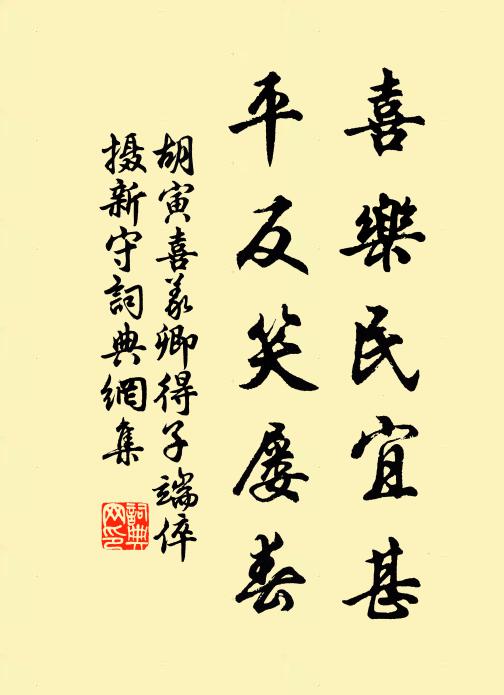 喜樂民宜甚
平反笑屡春
胡寅喜羲卿得子端倅
摄新守詞典網集
詞典网印